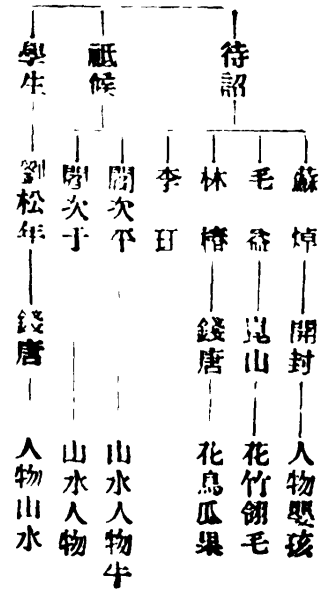 待詔
蘇焯 開封 人物嬰孩
毛益 崑山 花竹翎毛
林椿 錢唐 花鳥瓜果
李
祗候
閻次平 山水人物牛
閻次于 山水人物
學生
劉松年 錢唐 人物山水